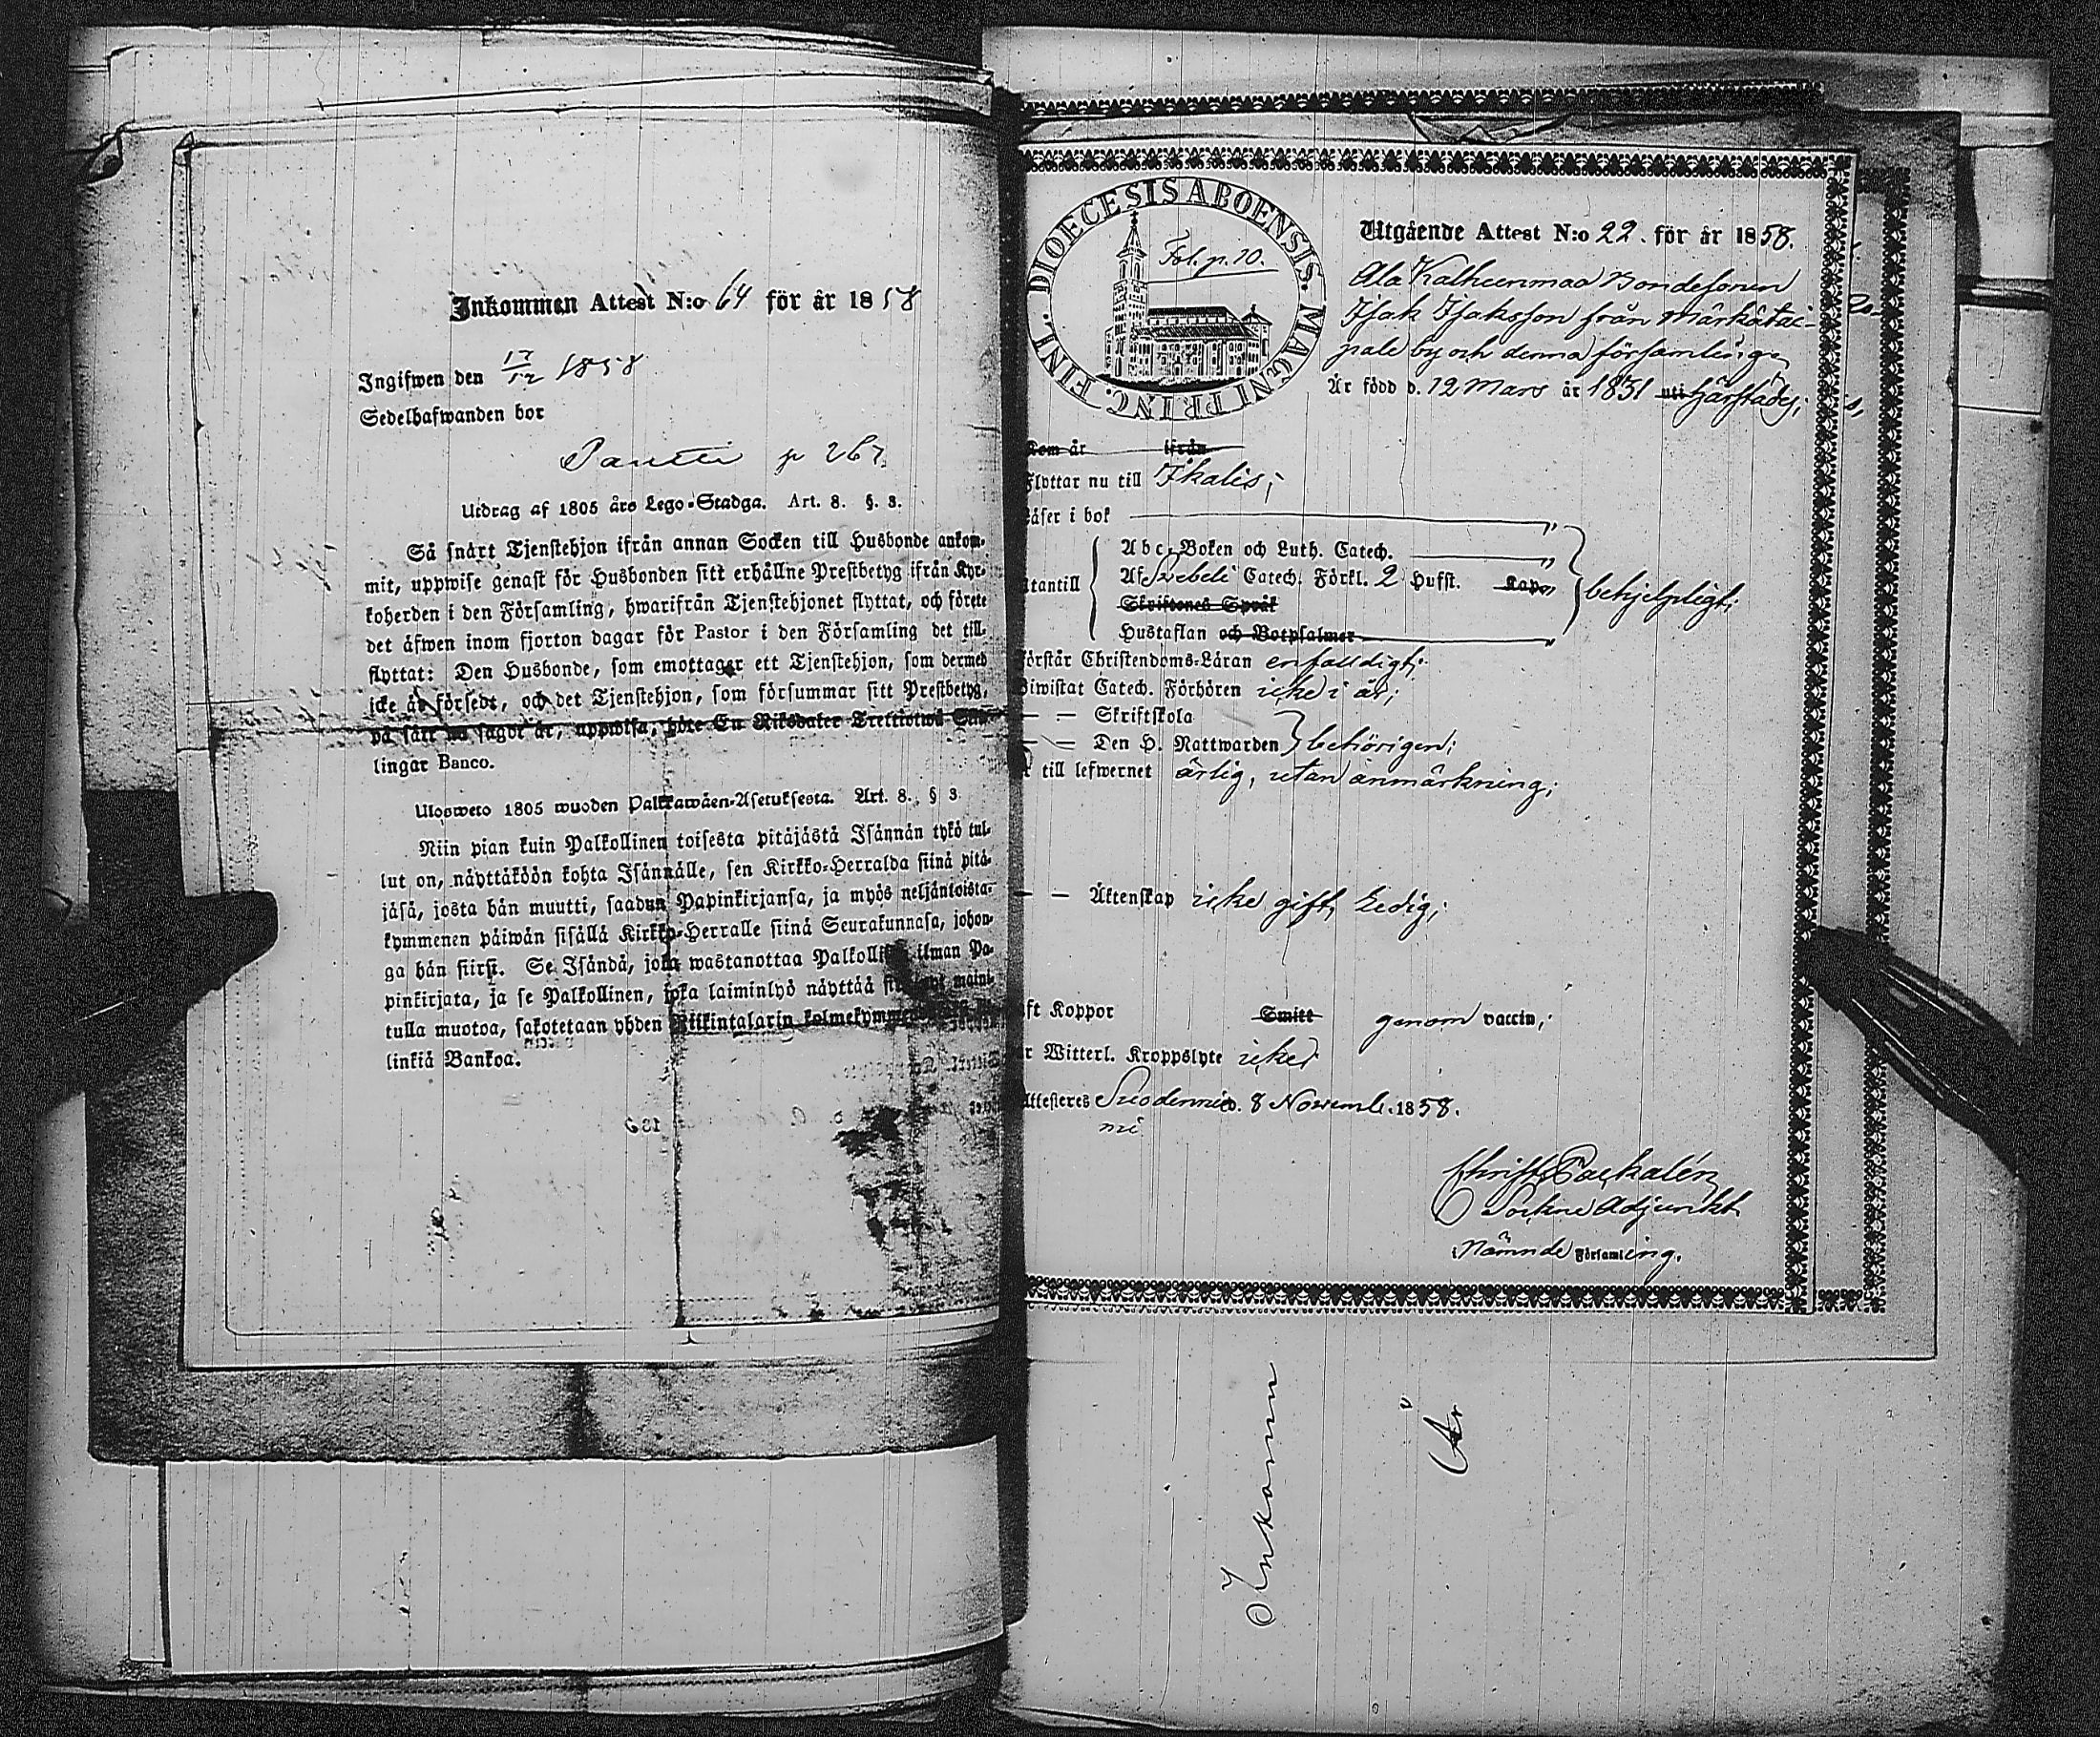 Inkommen Attest N:o 64 för år 1858
Ingifwen den 17/12 1858
Sedelhafwanden bor
p 267.
Utdrag af 1805 års Lego-Stadga. Art. 8. §. 3.
Så snårt Tjenstehjon ifrån annan Socken till Husbonde ankom-
mit, uppwise genast för Husbonden sitt erhållne Prestbetyg ifrån Kyr-
koherden i den Församling, hwarifrån Tjenstehjonet flyttat, och förete
det åfwen inom fjorton dagar för Pastor i den Församling det till-
flyttat: Den Husbonde, som emottager ett Tjenstehjon, som dermed
icke är försedt, och det Tjenstehjon, som försummar sitt Prestbetyg,
på sätt nu sagdt är, uppwisa, böte En Riksdaler Trettiotwå Skil-
lingar Banco.
Ulosweto 1805 wuoden Palkkawäen-Asetuksesta. Art. 8. § 3.
Niin pian kuin Palkollinen toisesta pitäjästä Isännän tykö tul-
lut on, näyttäköön kohta Isännälle, sen Kirkko-Herralda siinä pitä-
jäsä, josta hän muutti, saadun Papinkirjansa, ja myös neljäntoista-
kymmenen päiwän sisällä Kirkko-Herralle siinä Seurakunnasa, johon-
ga hän siirsi. Se Isändä, joka wastanottaa Palkollisen ilman Pa-
pinkirjata, ja se Palkollinen, joka laiminlyö näyttää maini-
tulla muotoa, sakotetaan yhden Riikintalarin kolmekymmen
linkiä Bankoa.
DIOECESIS ABOENSIS. MAGNI PRINC. FINL.
Fol. p. 10.
Utgående Attest N:o 22. för år 1858.
Ala Kalheenmaa Bondesonen
Isak Isaksson från Märkätai-
pale by och denna församling,
Är född d. 12 Mars år 1831 uti härstädes;
Kom år ifrån
Flyttar nu till Ikalis;
Läser i bok
Utantill
Abc-Boken och Luth. Catech.
Af Svebeli Catech. Förkl. 2 Hufst. Kap.
Skriftenes Språk
Hustaflan och Botpsalmer
behjelpligt;
Förstår Christendoms-Läran enfaldigt;
Biwistat Catech. Förhören icke i år;
— — Skriftskola
— — Den H. Nattwarden
behörigen;
till lefwernet ärlig, utan anmärkning;
— — Äktenskap icke gift, Ledig;
ft Koppor Smitt genom vaccin;
r Witterl. Kroppslyte icke;
Attesteres Suodennie- d. 8 Novemb. 1858.
mi
Christ. Packalén
Sockne Adjunkt
i Nämnde Församling.
Inkomm
År